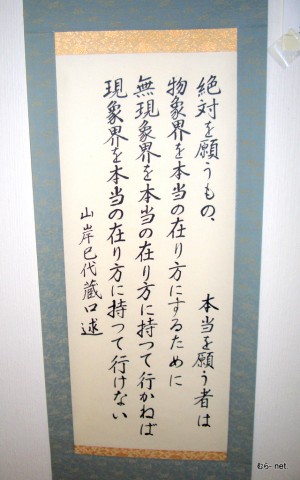 絶対を願うもの、　本当を願う者は
物象界を本当の在り方にするために
無現象界を本当の在り方に持つて行かねば
現象界を本当の在り方に持つて行けない
山岸巳代蔵口述
むら-net